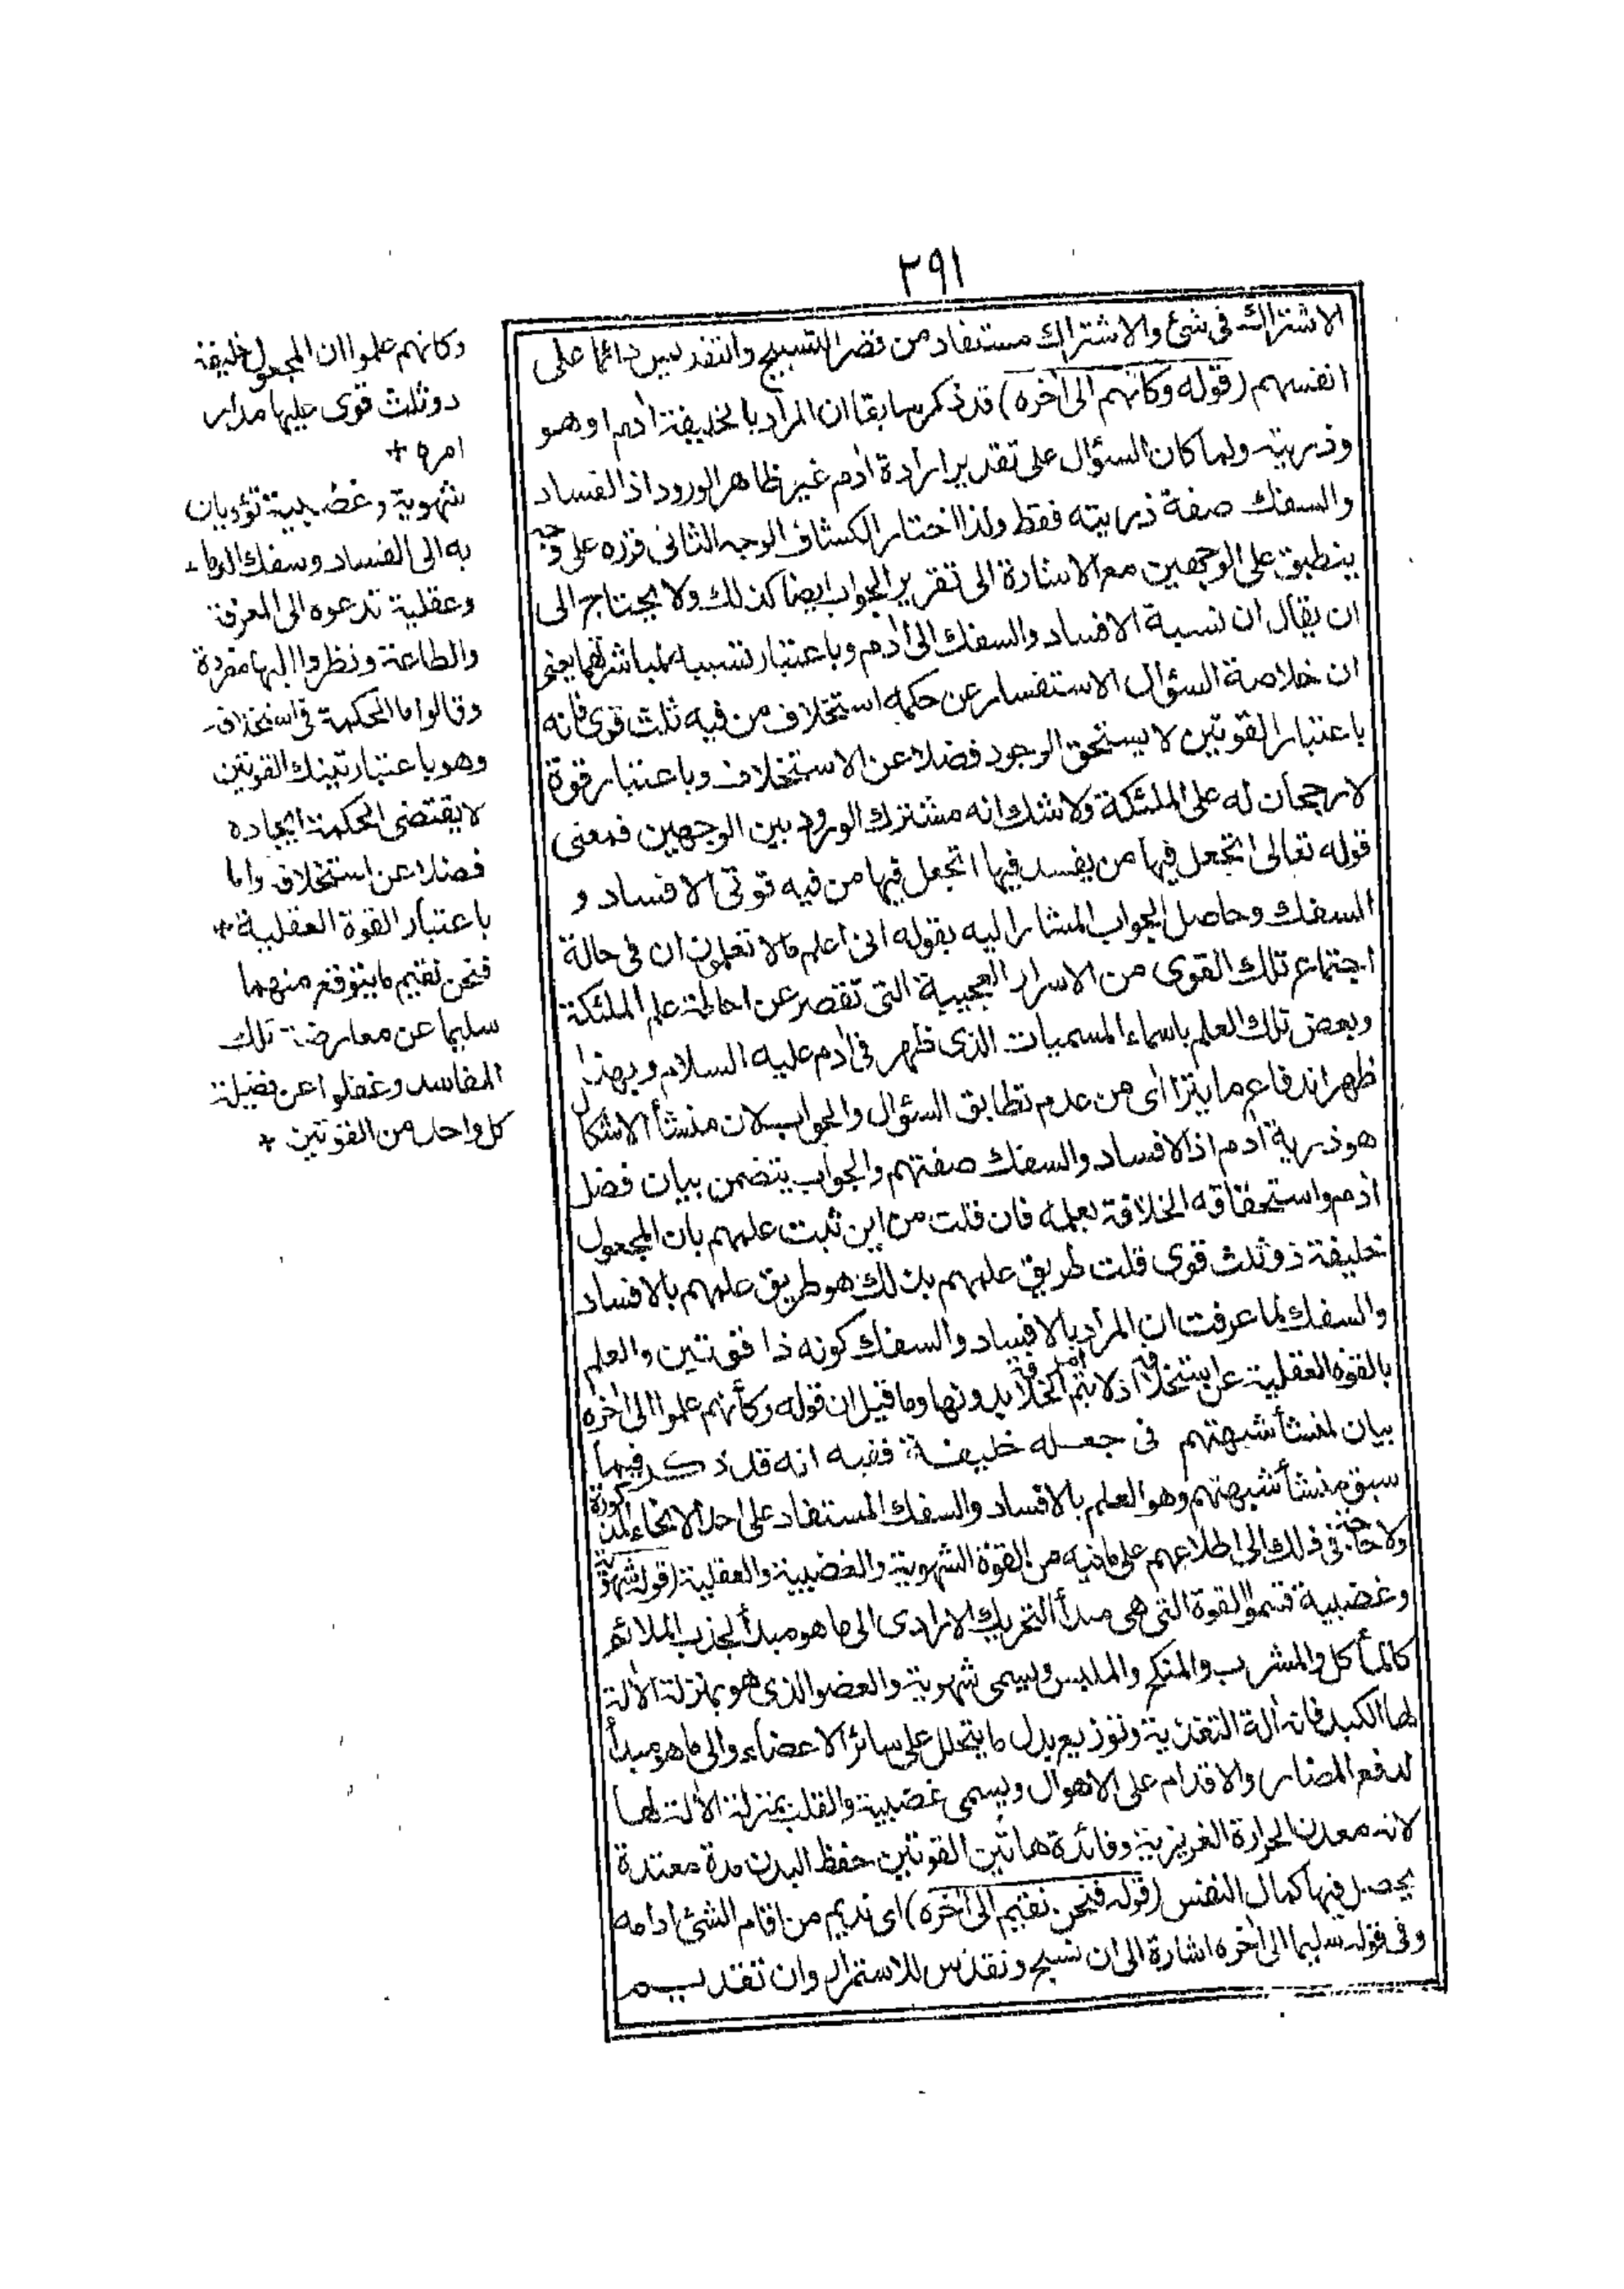 ٢٩١
الاشتراك فى شئ والاشتراك مستفاد من قصر التسبيح والتقديس دائما على
انفسهم (قوله وكانهم الى اخره) قد ذكر سابقا ان المراد بالخليفة ادم او هو
وذريته ولما كان السؤال على تقدير ارادة ادم غير ظاهر الورود اذ الفساد
والسفك صفة ذريته فقط ولذا اختار الكشاف الوجه الثانى قرره على وجه
ينطبق على الوجهين مع الاشارة الى تقرير الجواب ايضا كذلك ولا يحتاج الى
ان يقال ان نسبة الافساد والسفك الى ادم وباعتبار تسببه لمباشرتهما يعنى
ان خلاصة السؤال الاستفسار عن حكمه استخلاف من فيه ثلث قوى فانه
باعتبار القوتين لا يستحق الوجود فضلا عن الاستخلاف وباعتبار قوة
لا رجحان له على الملئكة ولا شك انه مشترك الورود بين الوجهين فمعنى
قوله تعالى اتجعل فيها من يفسد فيها اتجعل فيها من فيه قوتى الافساد و
السفك وحاصل الجواب المشار اليه بقوله انى اعلم ما لا تعلمون ان فى حالة
اجتماع تلك القوى من الاسرار العجيبية التى تقصر عن احاطة علم الملئكة
وبعض تلك العلم باسماء المسميات الذى ظهر فى ادم عليه السلام وبهذا
ظهر اندفاع ما يترا اى من عدم تطابق السؤال والجواب لان منشأ الاشكال
هو ذرية ادم اذ الافساد والسفك صفتهم والجواب يتضمن بيان فضل
ادم واستحقاقه الخلافة بعلمه فان قلت من اين ثبت علمهم بان المجعول
خليفة ذو ثلث قوى قلت طريق علمهم بذلك هو طريق علمهم بالافساد
والسفك لما عرفت ان المراد بالافساد والسفك كونه ذا قوتين والعلم
بالقوة العقلية عن استخلافه اذ لا يتم امر الخلافة بدونها وما قيل ان قوله وكأنهم علموا الى اخره
بيان لمنشأ شبهتهم فى جعله خليفة ففيه انه قد ذكر فيما
سبق منشأ شبهتهم وهو العلم بالافساد والسفك المستفاد على احد الانحاء المذكورة
ولا حاجة فى ذلك الى اطلاعهم على ما فيه من القوة الشهوية والغضبية والعقلية (قوله شهوية
وغضبية قسموا القوة التى هى مبدأ التحريك الارادى الى ما هو مبدأ لجذب الملائم
كالمأكل والمشرب والمنكح والملبس ويسمى شهوية والعضو الذى هو بمنزلة الالة
لها الكبد فانه الة التغذية وتوزيع بدل ما يتحلل على سائر الاعضاء والى ما هو مبدأ
لدفع المضار والاقدام على الاهوال ويسمى غضبية والقلب بمنزلة الالة لها
لانه معدن الحرارة الغريزية وفائدة هاتين القوتين حفظ البدن مدة معتدة
يحصل فيها كمال النفس (قوله فنحن نقيم الى اخره) اى نديم من اقام الشئ ادامه
وفى قوله سليما الى اخره اشارة الى ان نسبح ونقدس للاستمرار وان تقديم
وكانهم علموا ان المجعول خليفة
ذو ثلث قوى عليها مدار
امره +
شهوية وغضبية تؤديان
به الى الفساد وسفك الدماء
وعقلية تدعوه الى المعرفة
والطاعة ونظروا اليها مفردة
وقالوا ما الحكمة فى استخلافه
وهو باعتبار تينك القوتين
لا يقتضى الحكمة ايجاده
فضلا عن استخلافه واما
باعتبار القوة العقلية +
فنحن نقيم ما يتوقع منهما
سليما عن معارضة تلك
المفاسد وغفلوا عن فضيلة
كل واحد من القوتين +